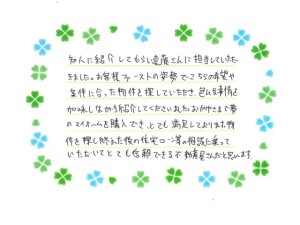 知人に紹介してもらい遠藤さんに担当していただ
きました。お客様ファーストの姿勢でこちらの希望や
条件に合った物件を探していただき、色んな事情を
加味しながら紹介してくださいました。おかげさまで夢
のマイホームを購入でき、とても満足しております。物
件を探し終えた後の住宅ローン等の相談に乗って
いただいてとても信頼できる不動産屋さんだと思います。